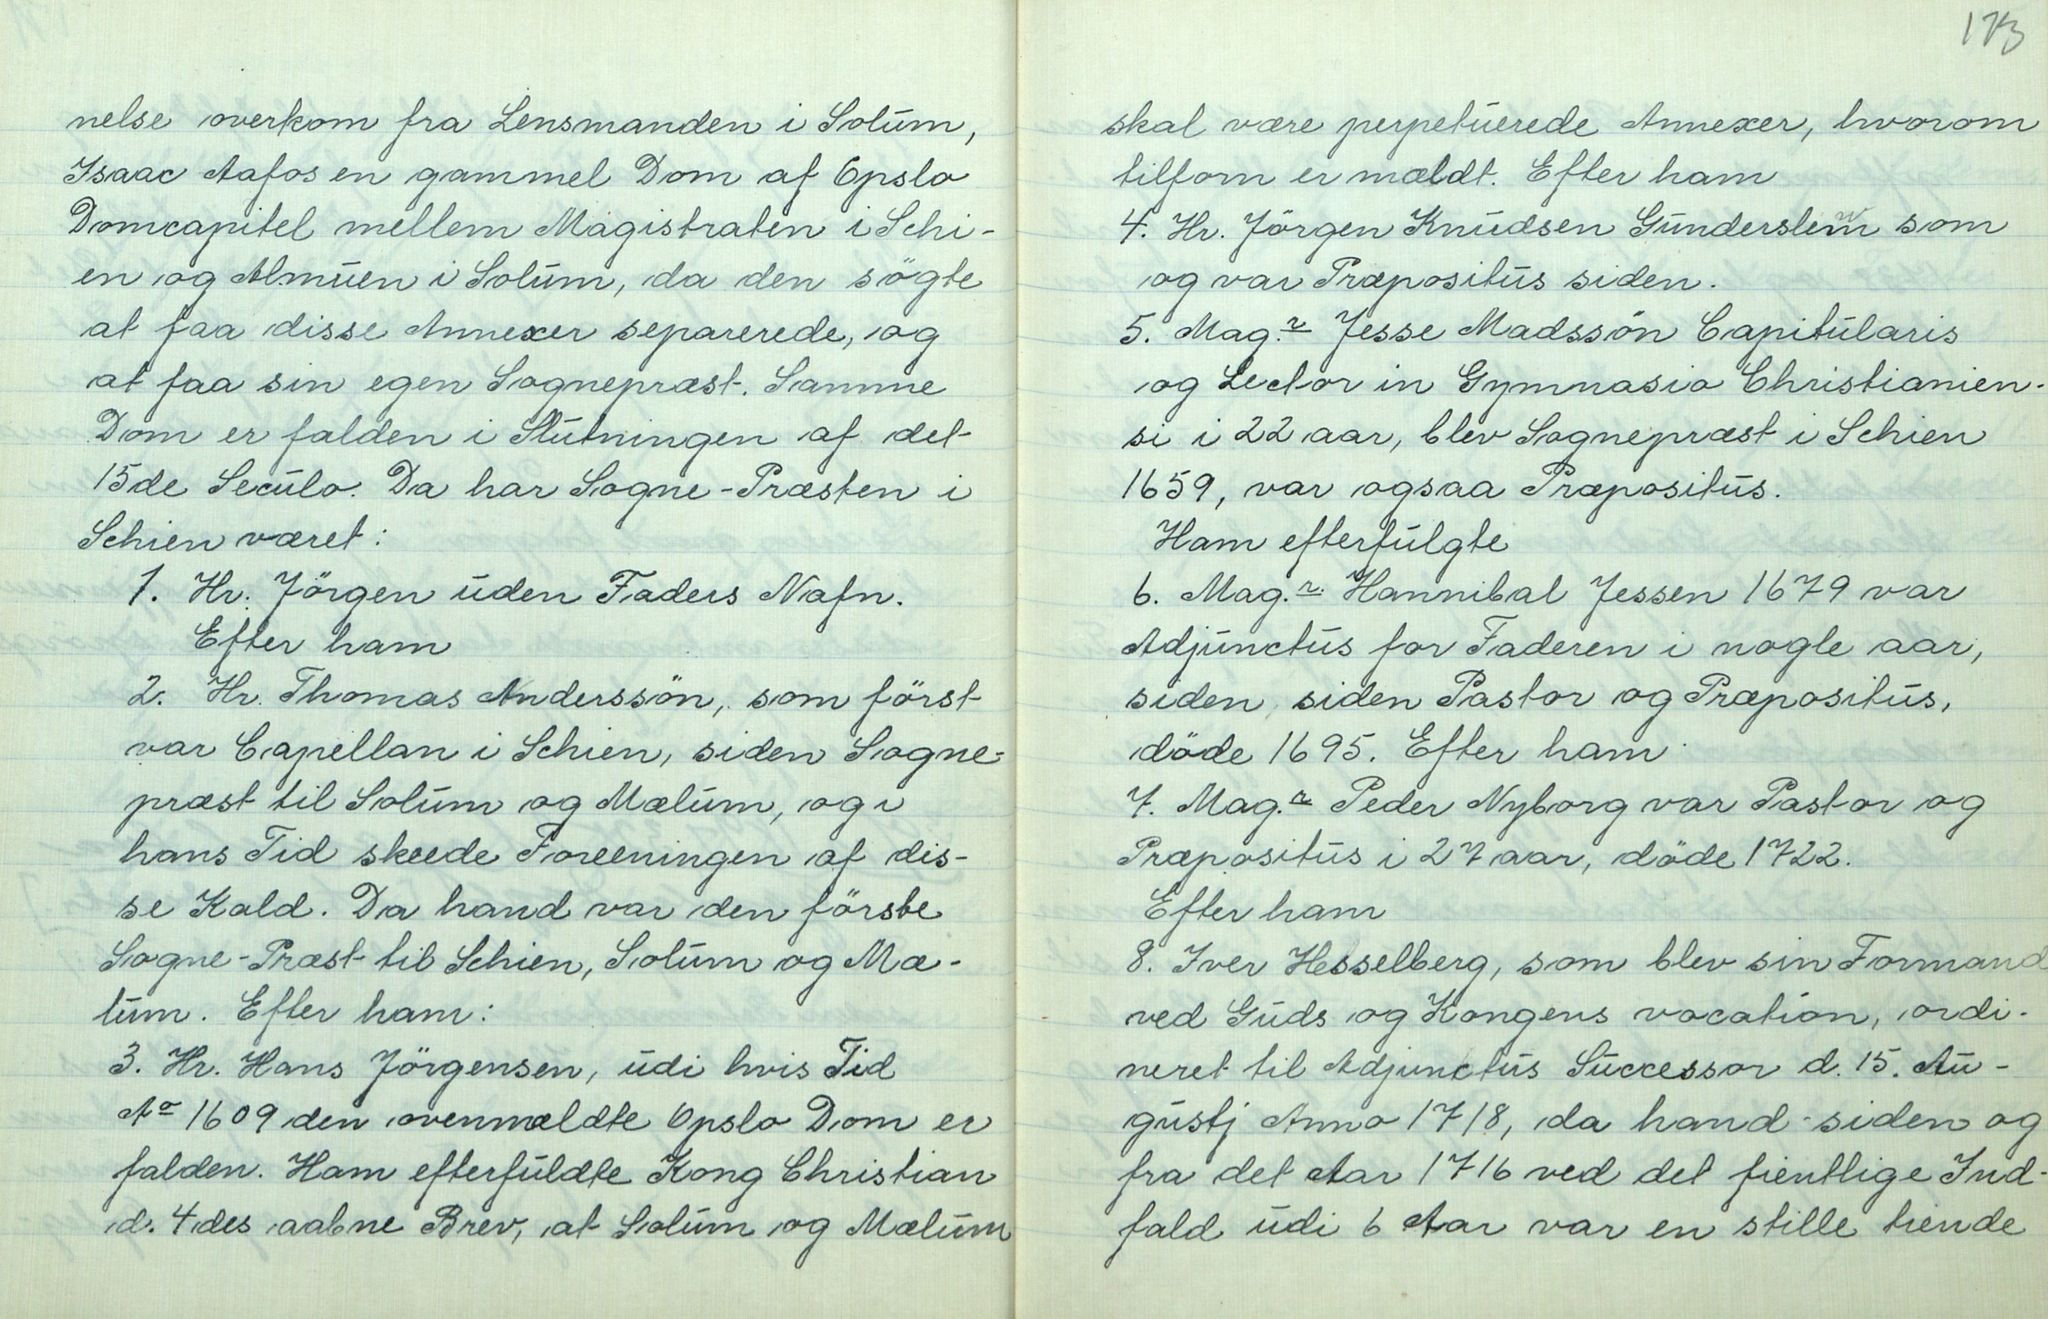 nelse overkom fra Lensmanden i Solum,
Isaac Aafos en gammel Dom af Opslo
Domcapitel mellem Magistraten i Schi-
en og Almuen i Solum, da den sögte
at faa disse Annexer separerede, og
at faa sin egen Sognepræst. Samme
Dom er falden i Slutningen af det
15de Seculo. Da har Sogne-Præsten i
Schien været:
1. Hr. Jörgen uden Faders Nafn.
Efter ham
2. Hr. Thomas Anderssön, som först
var Capellan i Schien, siden Sogne-
præst til Solum og Mælum, og i
hans Tid skeede Foreeningen af dis-
se Kald. Da hand var den förste
Sogne-Præst til Schien, Solum og Mæ-
lum. Efter ham:
3. Hr. Hans Jörgensen, udi hvis Tid
Ao 1609 den ovenmældte Opslo Dom er
falden. Ham efterfuldte Kong Christian
d. 4des aabne Brev, at Solum og Mælum
173
skal være perpetuerede Annexer, hvorom
tilforn er mældt. Efter ham
4. Hr. Jörgen Knudsen Gunderslew som
og var Præpositus siden.
5. Mag.r Jesse Madssön Capitularis
og Lector in Gymnasio Christianien-
si i 22 aar, blev Sognepræst i Schien
1659, var ogsaa Præpositus.
Ham efterfulgte
6. Mag.r Hannibal Jessen 1679 var
Adjunctus for Faderen i nogle aar,
siden siden Pastor og Præpositus,
döde 1695. Efter ham
7. Mag.r Peder Nyborg var Pastor og
Præpositus i 27 aar, döde 1722.
Efter ham
8. Iver Hesselberg, som blev sin Formand
ved Guds og Kongens vocation, ordi-
neret til Adjunctus Successor d. 15. Au-
gustj Anno 1718, da hand siden og
fra det Aar 1716 ved det fientlige Ind-
fald udi 6 Aar var en stille tiende